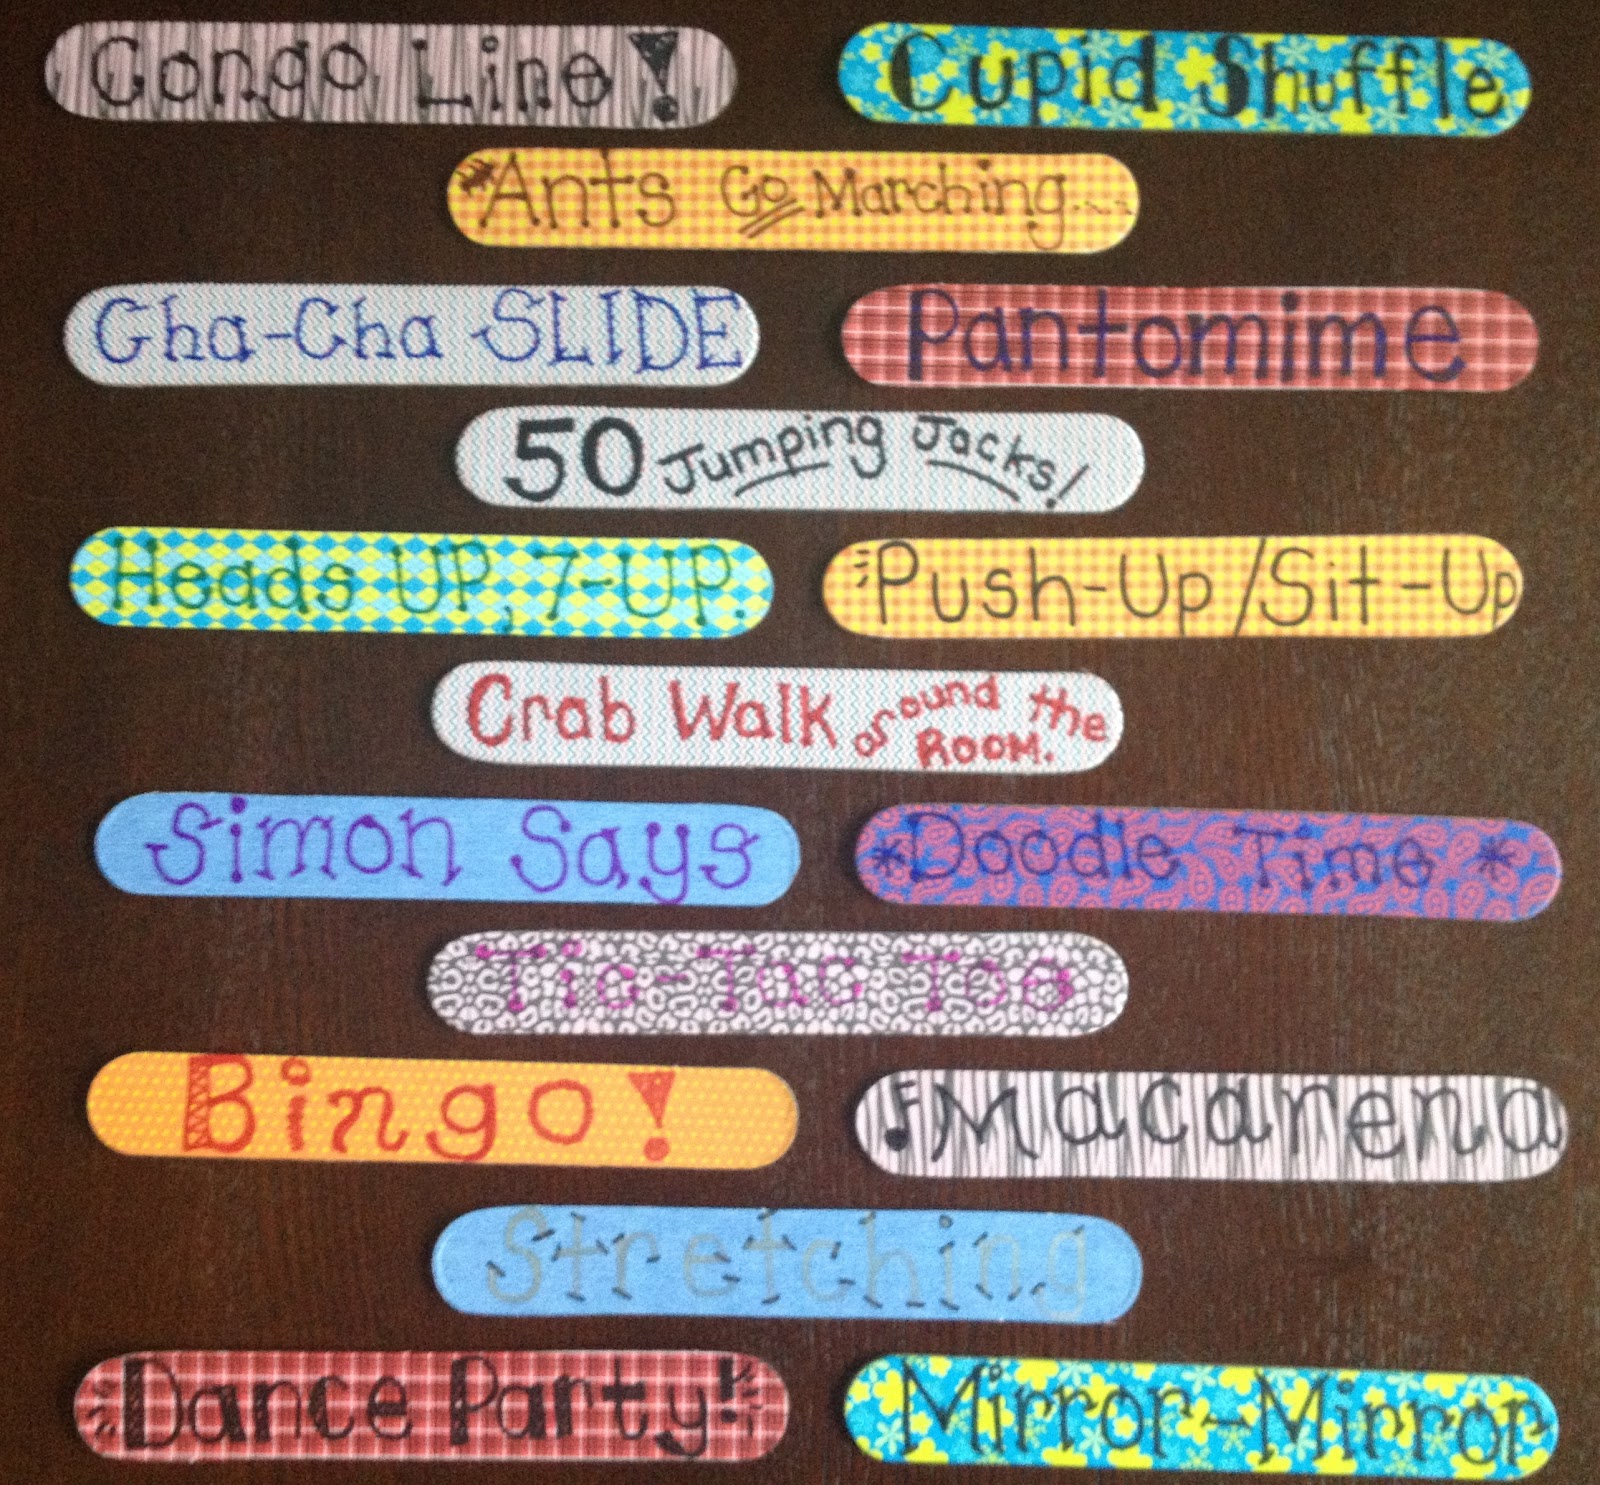 Congo Line!
Cupid Shuffle
Ants Go Marching....
Cha-Cha SLIDE
Pantomime
50 Jumping Jacks!
Heads UP, 7-UP.
Push-Up/Sit-Up
Crab Walk around the
ROOM.
Simon Says
*Doodle Time*
Tic-Tac Toe
Bingo!
Macarena
Stretching
Dance Party!
Mirror-Mirror